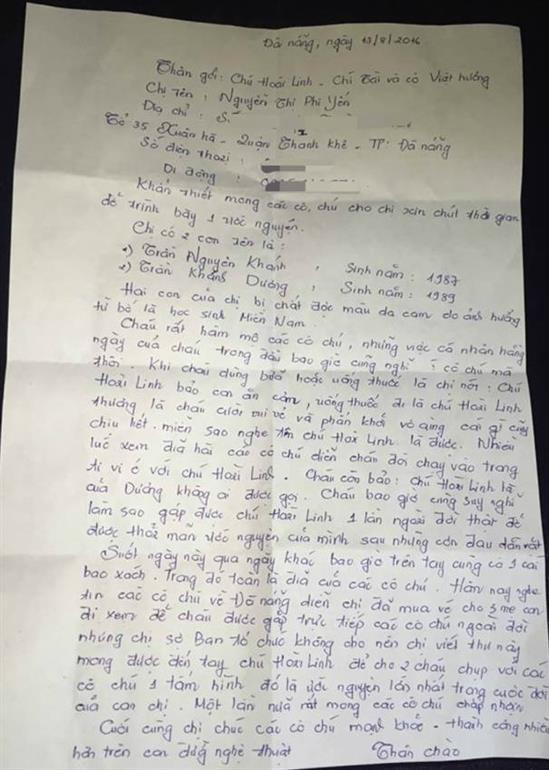 Đà nẵng, ngày 13/8/2016
Thân gởi: Chú Hoài Linh - Chí Tài và cô Việt Hương
Chị tên: Nguyễn Thị Phi Yến
Địa chỉ: S
Tổ 35 Xuân hà - Quận Thanh khê - TP: Đà nẵng
Số điện thoại:
Di động:
Khẩn thiết mong các cô, chú cho chị xin chút thời gian
để trình bày 1 ước nguyện.
Chị có 2 con tên là:
1) Trần Nguyên Khánh, Sinh năm: 1987
2) Trần Khánh Dương, Sinh năm: 1989
Hai con của chị bị chất độc màu da cam do ảnh hưởng
từ bố là học sinh Miền Nam.
Cháu rất hâm mộ các cô chú, những việc cá nhân hàng
ngày của cháu trong đầu bao giờ cũng nghĩ: cô chú mà
thôi. Khi cháu dùng bữa hoặc uống thuốc là chị nói: Chú
Hoài Linh bảo con ăn cơm, uống thuốc đi là chú Hoài Linh
thương là cháu cười vui vẻ và phấn khởi vô cùng cái gì cũng
chịu hết. miễn sao nghe tên chú Hoài Linh là được. Nhiều
lúc xem đĩa hài các cô chú diễn cháu đòi chạy vào trong
ti vi ở với chú Hoài Linh. Cháu còn bảo: chú Hoài Linh là
của Dương không ai được gọi. Cháu bao giờ cũng suy nghĩ
làm sao gặp được chú Hoài Linh 1 lần ngoài đời thật để
được thoả mãn ước nguyện của mình sau những cơn đau dằn vặt
Suốt ngày này qua ngày khác bao giờ trên tay cũng có 1 cái
bao xách. Trong đó toàn là đĩa của các cô chú. Hôm nay nghe
tin các cô chú về Đà nẵng diễn chị đã mua vé cho 3 mẹ con
đi xem để cháu được gặp trực tiếp các cô chú ngoài đời
nhưng chị sợ Ban tổ chức không cho nên chị viết thư này
mong được đến tay chú Hoài Linh để cho 2 cháu chụp với các
cô chú 1 tấm hình đó là ước nguyện lớn nhất trong cuộc đời
của con chị. Một lần nữa rất mong các cô chú chấp nhận
Cuối cùng chị chúc các cô chú mạnh khoẻ - thành công nhiều
hơn trên con đường nghệ thuật Thân chào